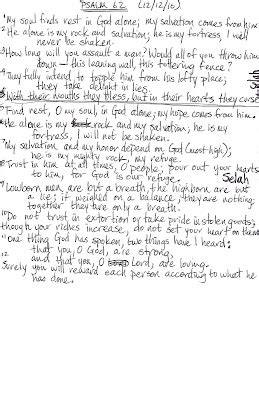 PSALM 62 (12/12/10)
1 My soul finds rest in God alone; my salvation comes from him
2 He alone is my rock and salvation; he is my fortress, I will
never be shaken.
3 How long will you assault a man? Would all of you throw him
down — this leaning wall, this tottering fence?
4 They fully intend to topple him from his lofty place;
they take delight in lies.
With their mouths they bless, but in their hearts they curse
Selah
5 Find rest, O my soul, in God alone; my hope comes from him.
6 He alone is my rock and my salvation; he is my
fortress, I will not be shaken.
7 My salvation and my honor depend on God (most high);
he is my mighty rock, my refuge.
8 Trust in him at all times, O people; pour out your hearts
to him, for God is our refuge. Selah
9 Lowborn men are but a breath, the highborn are but
a lie; if weighed on a balance, they are nothing;
together they are only a breath.
10 Do not trust in extortion or take pride in stolen goods;
though your riches increase, do not set your heart on them
11 One thing God has spoken, two things have I heard:
that you, O God, are strong,
12 and that you, O Lord, are loving.
Surely you will reward each person according to what he
has done.